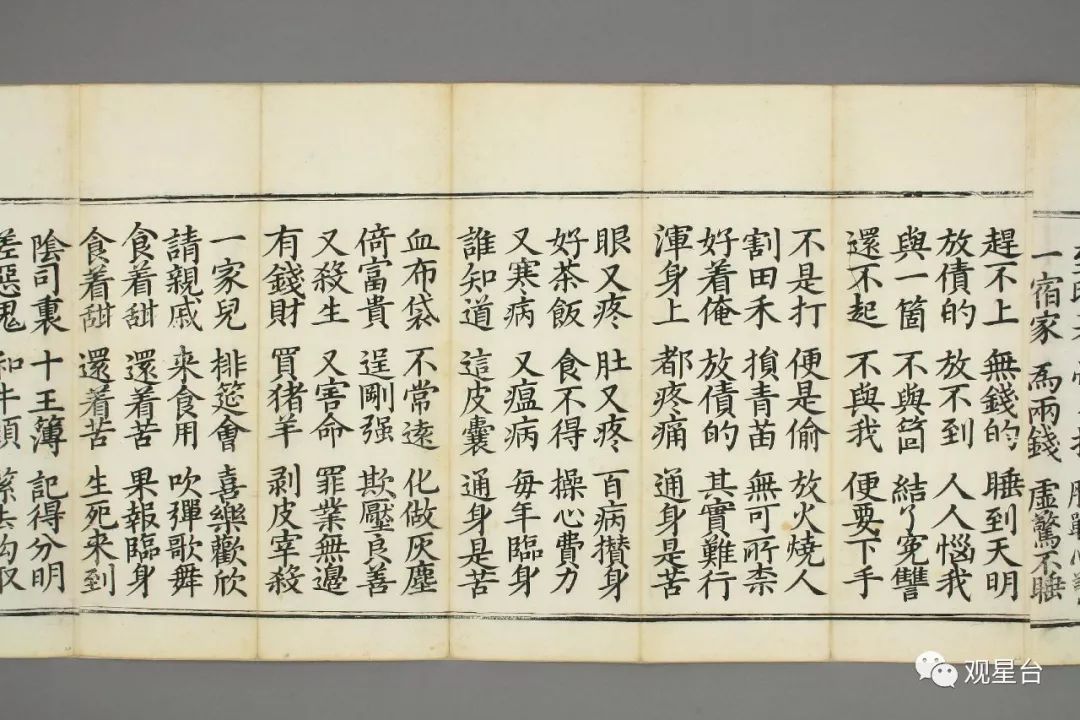 一宿家 爲兩錢 虛驚不睡
趕不上 無錢的 睡到天明
放債的 放不到 人人惱我
與一箇 不與箇 結了冤讐
還不起 不與我 便要下手
不是打 便是偷 放火燒人
割田禾 損青苗 無可所柰
好着俺 放債的 其實難行
渾身上 都疼痛 通身是苦
眼又疼 肚又疼 百病攅身
好茶飯 食不得 操心費力
又寒病 又瘟病 每年臨身
誰知道 這皮囊 通身是苦
血布袋 不常遠 化做灰塵
倚富貴 逞剛强 欺壓良善
又殺生 又害命 罪業無邊
有錢財 買猪羊 剥皮宰殺
一家兒 排筵會 喜樂歡欣
請親戚 来食用 吹彈歌舞
食着甜 還着苦 果報臨身
食着甜 還着苦 生死来到
陰司裏 十王簿 記得分明
差惡鬼 和牛頭 勾取
观星台